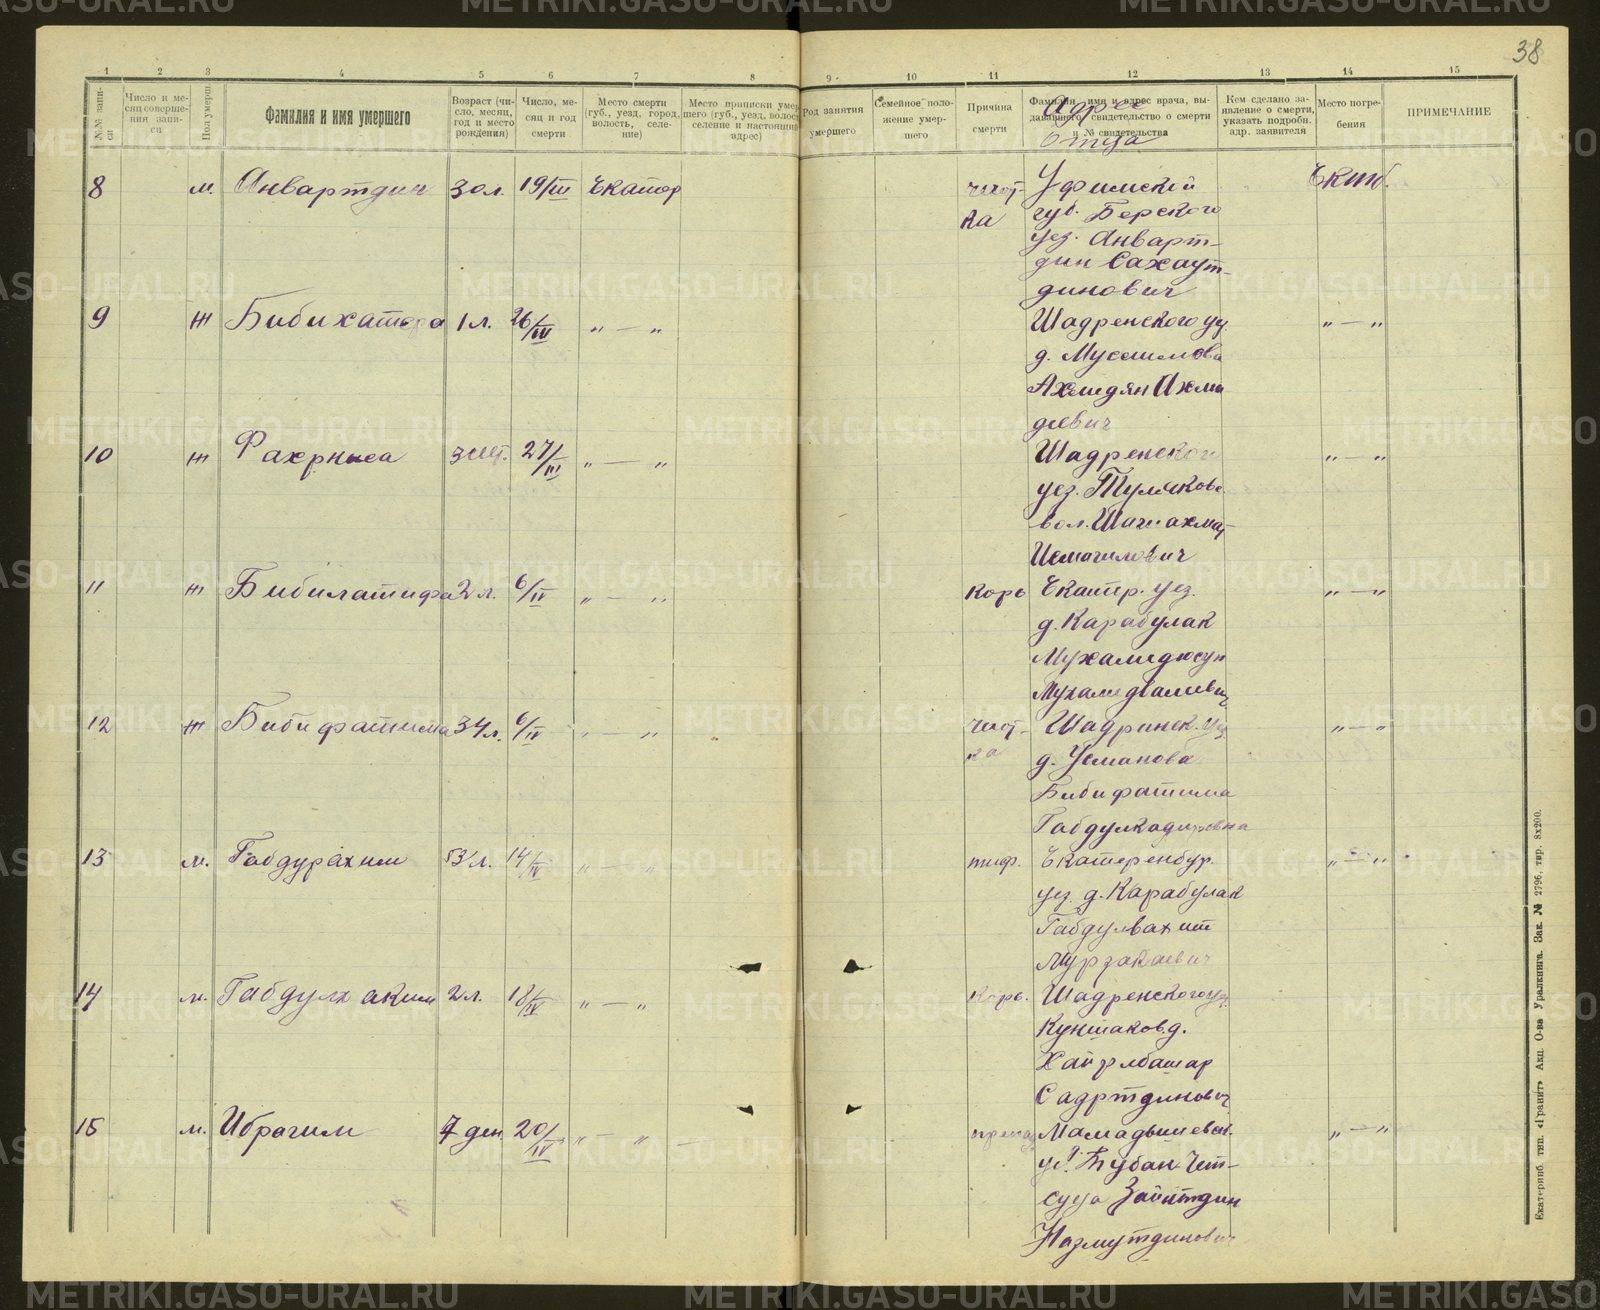 38
1 2 3 4 5 6 7 8 9 10 11 12 13 14 15
№№ записи
Число и месяц совершения записи
Пол умерш.
Фамилия и имя умершего
Возраст (число, месяц, год и место рождения)
Число, месяц и год смерти
Место смерти (губ., уезд, город, волость, селение)
Место приписки умершего (губ., уезд, волость, селение и настоящий адрес)
Род занятия умершего
Семейное положение умершего
Причина смерти
Фамилия, имя и адрес врача, выдавшего свидетельство о смерти и № свидетельства
Адрес
отца
Кем сделано заявление о смерти, указать подробн. адр. заявителя
Место погребения
ПРИМЕЧАНИЕ
8 м. Анвартдин 30 л. 19/III Екатер чахот- Уфимской Екатб.
ка губ. Берского
уез. Анварт-
дин Сахаут-
динович
9 ж Бибихатера 1 л. 26/III „ — „ Шадренского уу „ — „
д. Муслимова
Ахмидян Ахма
диевич
10 ж Фахрниса 27/III „ — „ Шадренского „ — „
уез. Тулякова
вол. Шагиахмат
Исмагилович
11 ж Бибилатифа 2 л. 6/IV „ — „ корь Екатер. уез. „ — „
д. Карабулак
Мухамидюсуп
Мухамедвалиевич
12 ж Бибифатима 34 л. 6/IV „ — „ чахот- Шадринск. уез „ — „
ка д. Усманова
Бибифатима
Габдулкадировна
13 м. Габдурахим 53 л. 14/IV „ — „ тиф. Екатеренбур. „ — „
уез. д. Карабулак
Габдулвахит
Мурзакаевич
14 м. Габдулхаким 2 л. 18/IV „ — „ Корь. Шадренского уз.
Куншаков. д.
Хайрлбашар
Садртдинович
15 м. Ибрагим 7 ден 20/IV „ — „ — Мамадышевск. „ — „
Кубан Чет-
суца Зайнтдин
Назмутдинович
Екатеринб. тип. «Гранит» Акц. О-ва Уралкнига. Зак. № 2796, тир. 8х200.
METRIKI.GASO-URAL.RU